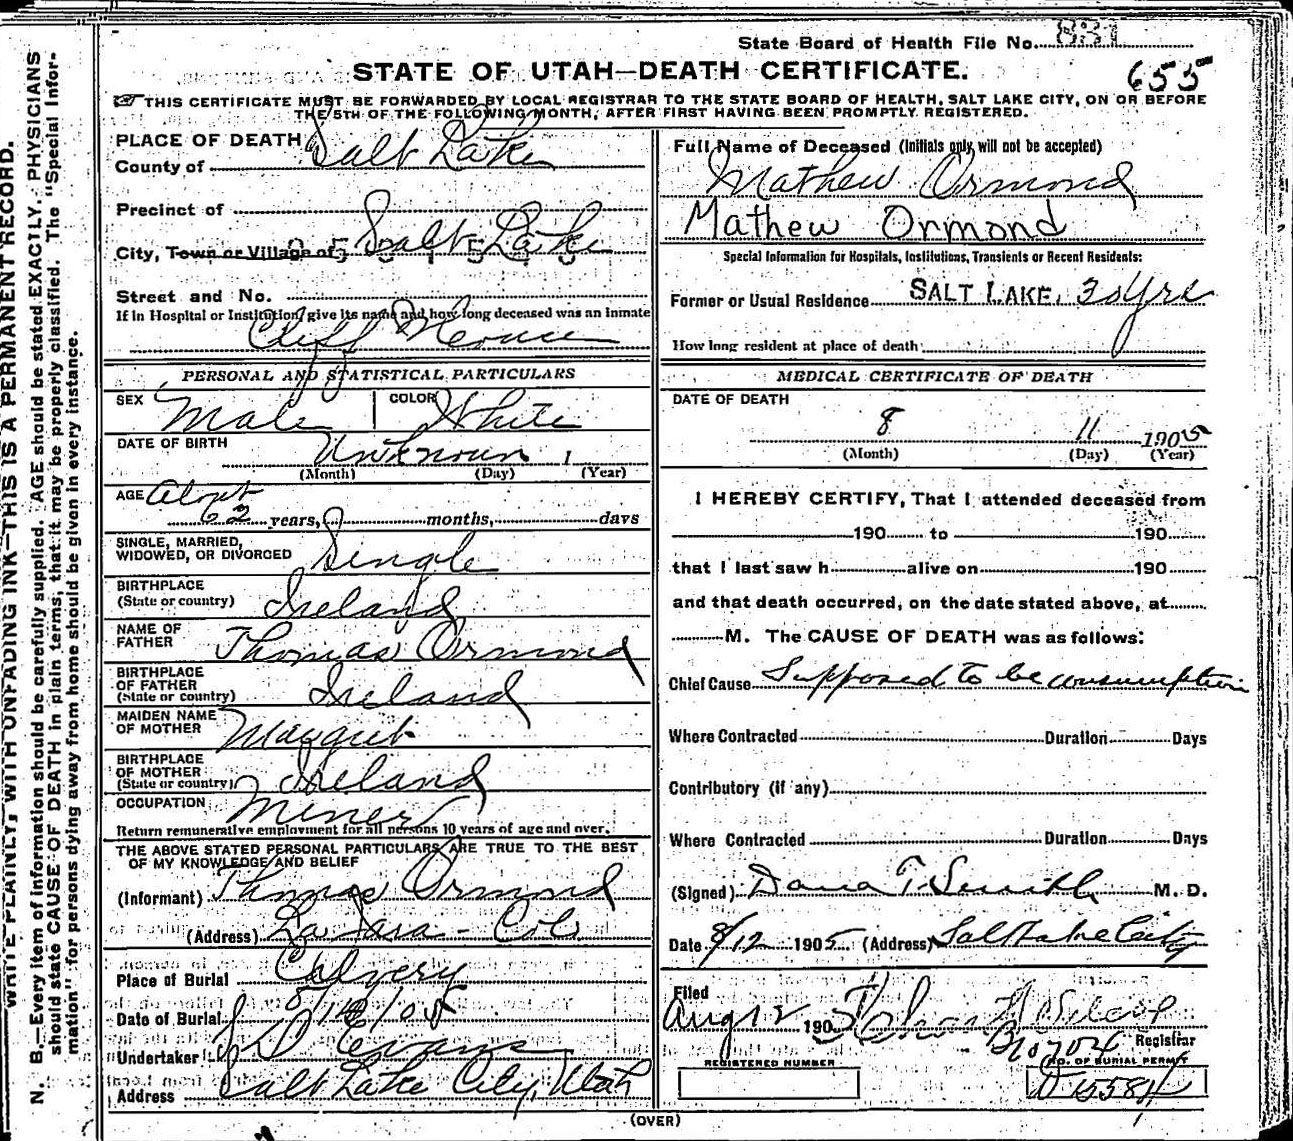 State Board of Health File No. 831
STATE OF UTAH—DEATH CERTIFICATE.
655
☞ THIS CERTIFICATE MUST BE FORWARDED BY LOCAL REGISTRAR TO THE STATE BOARD OF HEALTH, SALT LAKE CITY, ON OR BEFORE
THE 5TH OF THE FOLLOWING MONTH, AFTER FIRST HAVING BEEN PROMPTLY REGISTERED.
WRITE PLAINLY, WITH UNFADING INK—THIS IS A PERMANENT RECORD.
N. B.—Every item of information should be carefully supplied. AGE should be stated EXACTLY. PHYSICIANS
should state CAUSE OF DEATH in plain terms, that it may be properly classified. The "Special Infor-
mation" for persons dying away from home should be given in every instance.
PLACE OF DEATH
County of Salt Lake
Precinct of
City, Town or Village of Salt Lake
Street and No.
If in Hospital or Institution, give its name and how long deceased was an inmate
Cliff House
PERSONAL AND STATISTICAL PARTICULARS
SEX Male COLOR White
DATE OF BIRTH Unknown 1
(Month) (Day) (Year)
AGE About
62 years, months, days
SINGLE, MARRIED,
WIDOWED, OR DIVORCED Single
BIRTHPLACE
(State or country) Ireland
NAME OF
FATHER Thomas Ormond
BIRTHPLACE
OF FATHER
(State or country) Ireland
MAIDEN NAME
OF MOTHER Margret
BIRTHPLACE
OF MOTHER
(State or country) Ireland
OCCUPATION Miner
Return remunerative employment for all persons 10 years of age and over.
THE ABOVE STATED PERSONAL PARTICULARS ARE TRUE TO THE BEST
OF MY KNOWLEDGE AND BELIEF
(Informant) Thomas Ormond
(Address) La Jara - Colo
Place of Burial Calvery
Date of Burial
Undertaker Evans
Address Salt Lake City, Utah
Full Name of Deceased (Initials only will not be accepted)
Mathew Ormond
Mathew Ormond
Special Information for Hospitals, Institutions, Transients or Recent Residents:
Former or Usual Residence SALT LAKE, 30 Yrs
How long resident at place of death
MEDICAL CERTIFICATE OF DEATH
DATE OF DEATH
8 11 1905
(Month) (Day) (Year)
I HEREBY CERTIFY, That I attended deceased from
190 to 190
that I last saw h alive on 190
and that death occurred, on the date stated above, at
M. The CAUSE OF DEATH was as follows:
Chief Cause Supposed to be consumption
Where Contracted Duration Days
Contributory (if any)
Where Contracted Duration Days
(Signed) Dana T. Smith M. D.
Date 8/12 1905 (Address) Salt Lake City
Filed
Aug 12 1905
Registrar
REGISTERED NUMBER
NO. OF BURIAL PERMIT
D 15584
(OVER)